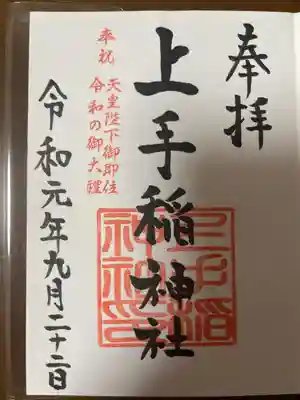 奉拝
上手稲神社
奉祝
天皇陛下御即位
令和の御大禮
令和元年九月二十二日
上手稲神社印